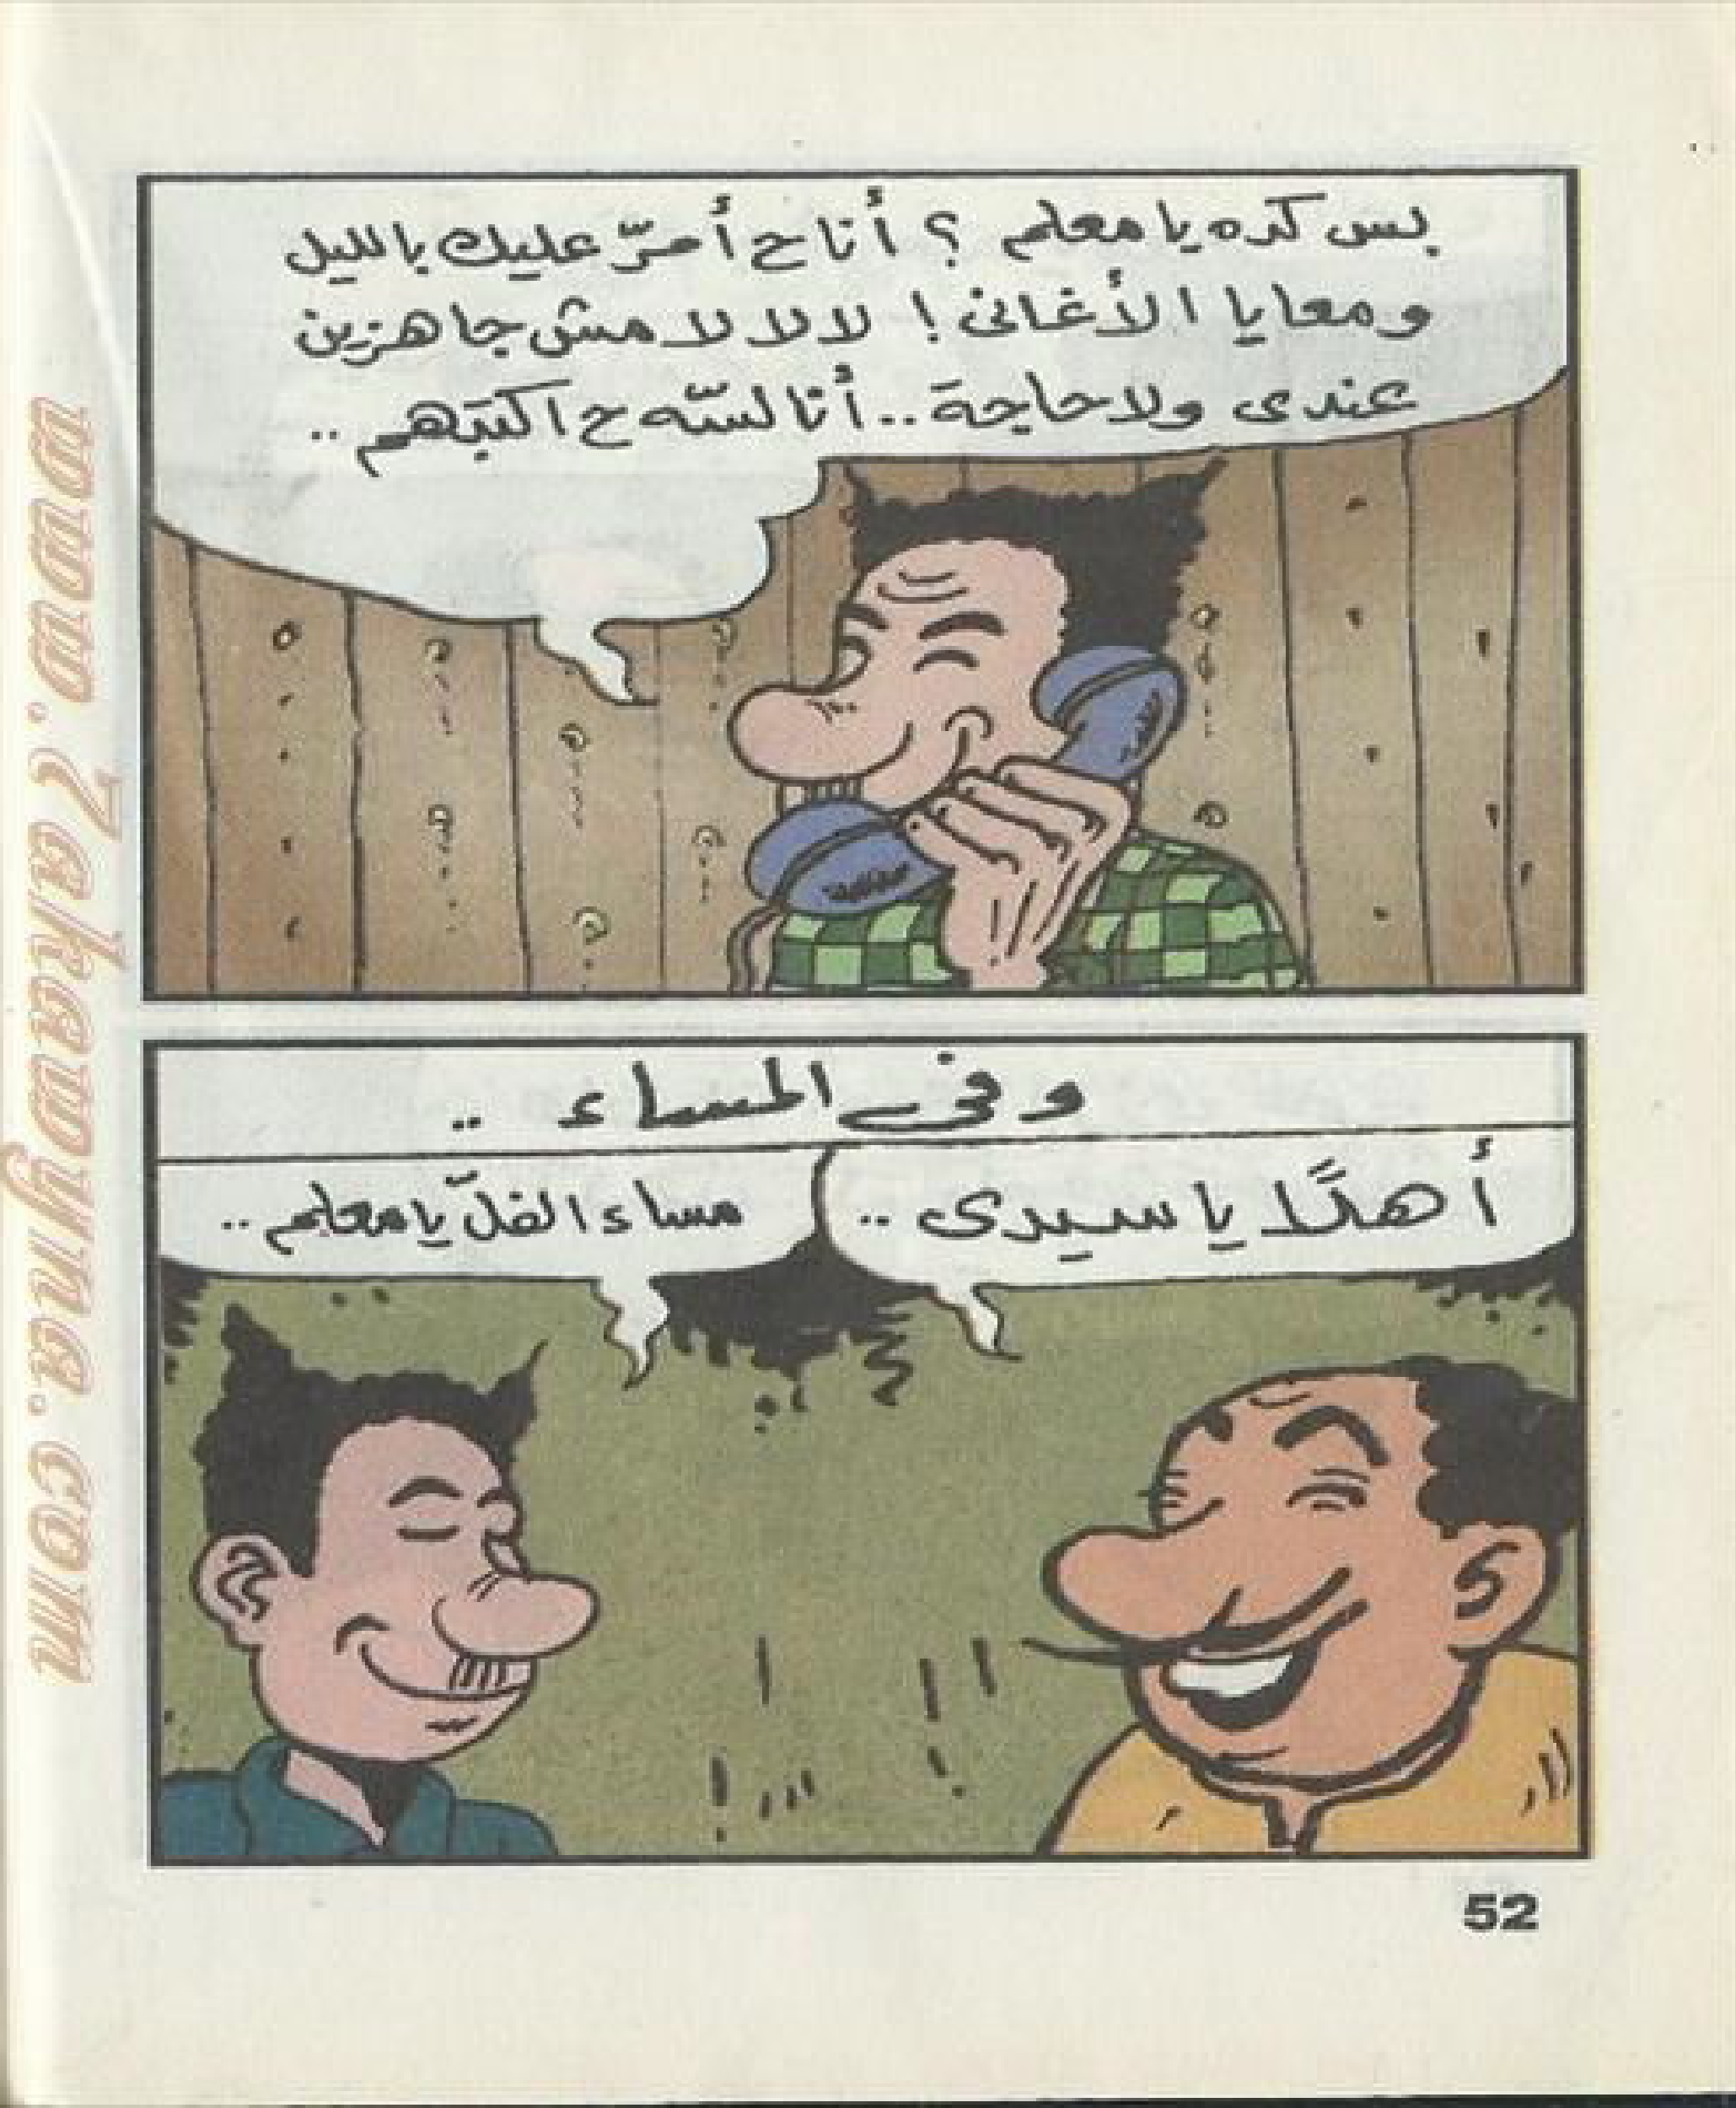 بس كده يا معلم ؟ أنا ح أمرّ عليك بالليل
ومعايا الأغانى ! لا لا لا مش جاهزين
عندى ولا حاجة .. أنا لسّه ح اكتبهم ..
وفى المساء ..
أهلًا يا سيدى ..
مساء الفلّ يا معلم ..
52
www.7akawyna.com